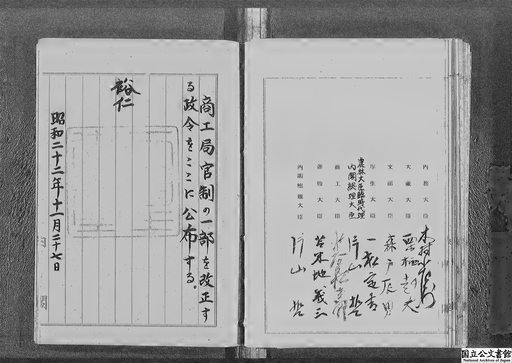 内務大臣 木村小左衛門
大蔵大臣 栗栖赳夫
文部大臣 森戸辰男
厚生大臣 一松定吉
農林大臣臨時代理
内閣総理大臣 片山哲
商工大臣 水谷長三郎
運輸大臣 苫米地義三
内閣総理大臣 片山哲
商工局官制の一部を改正す
る政令をここに公布する。
裕仁
昭和二十二年十一月二十七日
内閣
国立公文書館
National Archives of Japan